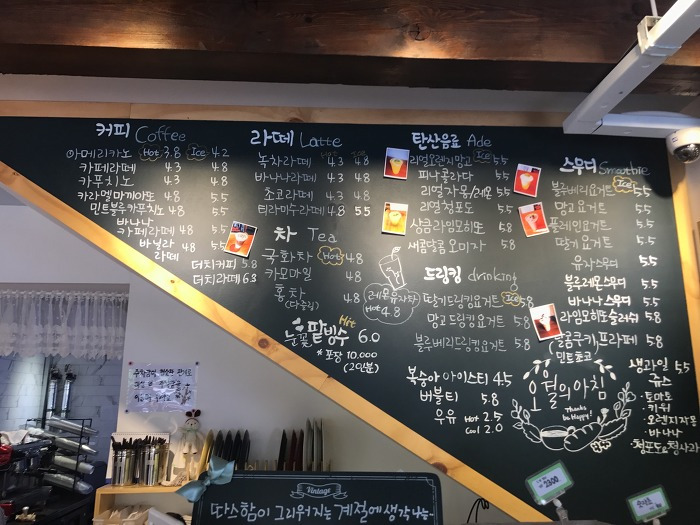 커피 Coffee
아메리카노 Hot 3.8 Ice 4.2
카페라떼 4.3 4.8
카푸치노 4.3 4.8
카라멜마끼아또 4.8 5.5
민트블루카푸치노 4.8 5.5
바나나
카페라떼 4.8 5.5
바닐라
라떼 4.8
더치커피 5.8
더치라떼 6.3
라떼 Latte
녹차라떼 4.3 4.8
바나나라떼 4.3 4.8
초코라떼 4.3 4.8
티라미수라떼 4.8 5.5
차 Tea
국화차 Hot 4.8
카모마일 4.8
홍차 4.8
(다즐링)
레몬유자차
Hot 4.8
눈꽃팥빙수 Hot 6.0
* 포장 10,000
(2인분)
탄산음료 Ade
리얼오렌지망고 Ice 5.5
피나콜라다 5.5
리얼자몽/레몬 5.5
리얼청포도 5.5
상큼라임모히또 5.8
새콤달콤오미자 5.8
드링킹 drinking
딸기드링킹요거트 Ice 5.8
망고드링킹요거트 5.8
블루베리드링킹요거트 5.8
복숭아 아이스티 4.5
버블티 5.8
우유 Hot 2.5
Cool 2.0
스무디 Smoothie
블루베리요거트 Ice 5.5
망고요거트 5.5
플레인요거트 5.5
딸기요거트 5.5
유자스무디 5.5
블루레몬스무디 5.5
바나나스무디 5.5
라임모히또슬러쉬 5.5
(달콤쿠키)프라페 5.8
민트초코
오월의아침
Thanks
be Happy!
생과일 5.5
쥬스
·토마토
·키위
·오렌지자몽
·바나나
·청포도&청사과
Vintage
따스함이 그리워지는 계절에 생각나는